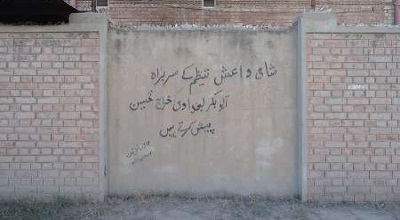 شامی داعش تنظیم کے سربراہ
ابوبکر بغدادی خراج تحسین
پیش کرتے ہیں